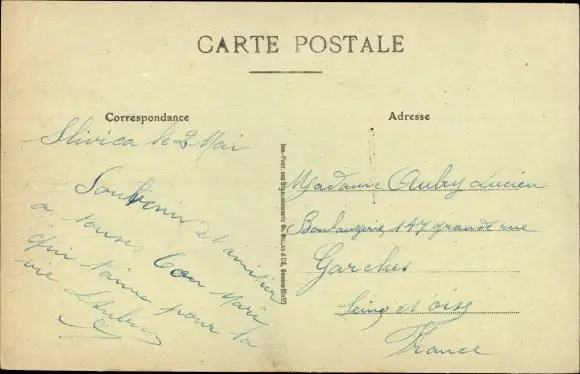 CARTE POSTALE
Correspondance
Slivica le 2 Mai
Souvenir et amitier
a tousse, Ton Mari
qui t'aime pour la
vie LAubry
Adresse
Madame Aubry Lucien
Boulangerie, 147 grande rue
Garches
Seine et oise
France